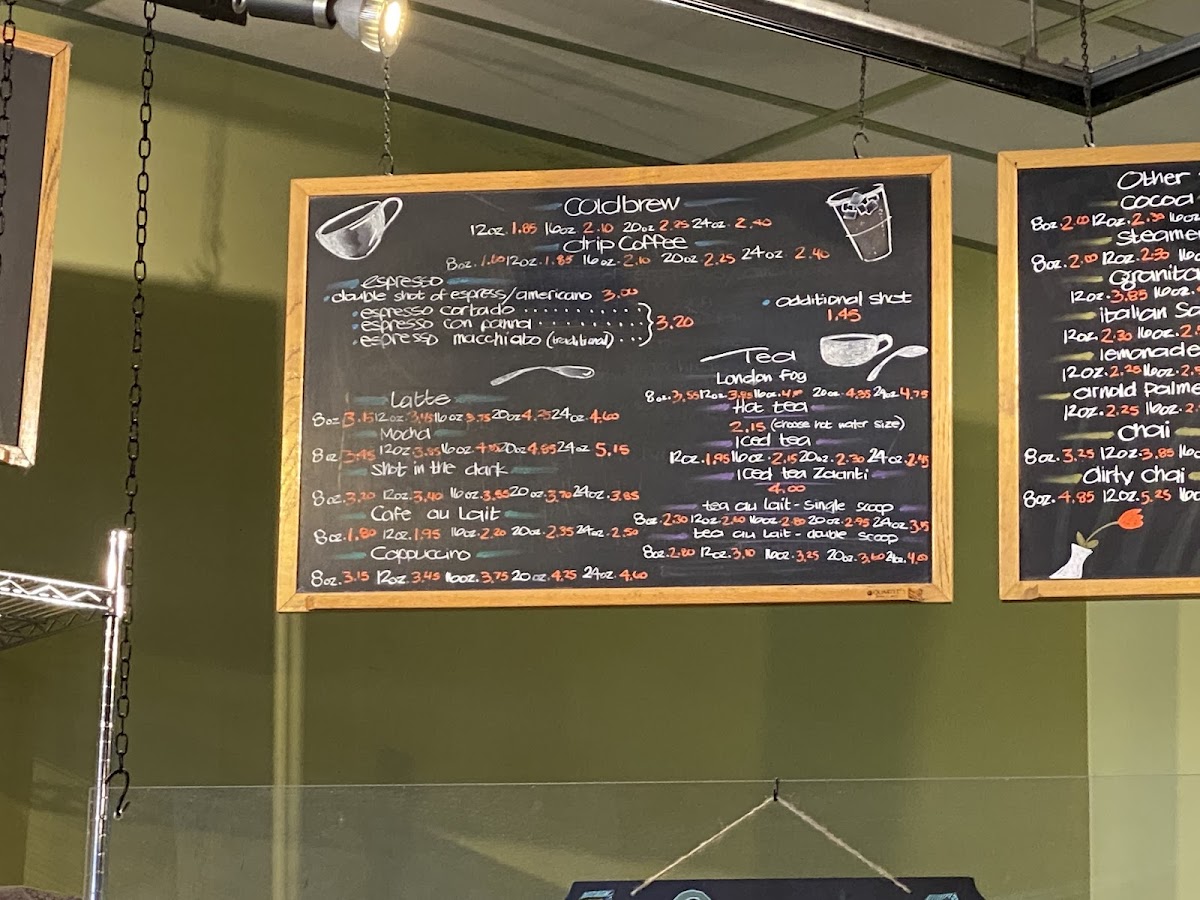 coldbrew
12oz. 1.85 16oz 2.10 20oz 2.25 24oz. 2.40
drip coffee
8oz. 1.60 12oz. 1.85 16oz. 2.10 20oz 2.25 24oz 2.40
espresso
double shot of espress/americano 3.00
espresso cortado
espresso con panna
espresso macchiato (traditional)
3.20
additional shot
1.45
Latte
8oz 3.15 12oz 3.45 16oz 3.75 20oz 4.25 24oz. 4.60
Mocha
8oz 3.45 12oz 3.85 16oz 20oz 4.85 24oz 5.15
shot in the dark
8oz. 3.20 12oz. 3.40 16oz. 3.55 20oz. 3.70 24oz. 3.85
Cafe au Lait
8oz. 1.80 12oz. 1.95 16oz. 2.20 20oz. 2.35 24oz. 2.50
Cappuccino
8oz. 3.15 12oz. 3.45 16oz. 3.75 20oz. 4.25 24oz. 4.60
Tea
London Fog
8oz. 3.55 12oz. 3.85 16oz. 20oz. 4.35 24oz. 4.75
Hot tea
2.15 (choose hot water size)
Iced tea
12oz. 1.95 16oz. 2.15 20oz. 2.30 24oz. 2.45
Iced tea Zaanti
4.00
tea au lait - single scoop
8oz. 2.30 12oz 2.60 16oz. 2.80 20oz. 2.95 24oz. 3.15
tea au lait - double scoop
8oz. 2.80 12oz. 3.10 16oz. 3.25 20oz. 3.60 24oz. 4.00
Other
cocoa
8oz. 2.00 12oz. 2.30 16oz
steamer
8oz. 2.00 12oz. 2.30 16o
Granita
12oz. 3.85 16oz.
italian So
12oz. 2.30 16oz. 2.
lemonade
12oz. 2.25 16oz. 2.5
arnold palme
12oz. 2.25 16oz. 2
chai
8oz. 3.25 12oz. 3.85 16o
dirty chai
8oz. 4.85 12oz. 5.25 16o